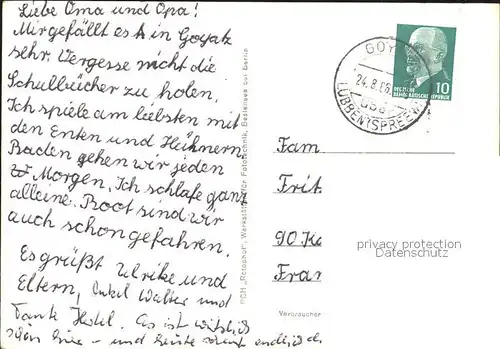 Liebe Oma und Opa!
Mir gefällt es in Goyatz
sehr. Vergesse nicht die
Schulbücher zu holen.
Ich spiele am liebsten mit
den Enten und Hühnern
Baden gehen wir jeden
Morgen. Ich schlafe ganz
alleine. Boot sind wir
auch schon gefahren.
Es grüßt Ulrike und
Eltern, Onkel Walter und
Tante Hertel. Es ist wirklich
schön hier – und heute
PGH „Rotophot", Werkstätten für Fototechnik, Bestensee bei Berlin
GOY
24.8.66
LÜBBEN (SPREEW
DEUTSCHE
DEMOKRATISCHE REPUBLIK
10
Fam
Frit
90 Ka
Fran
privacy protection
Datenschutz
Verbraucher